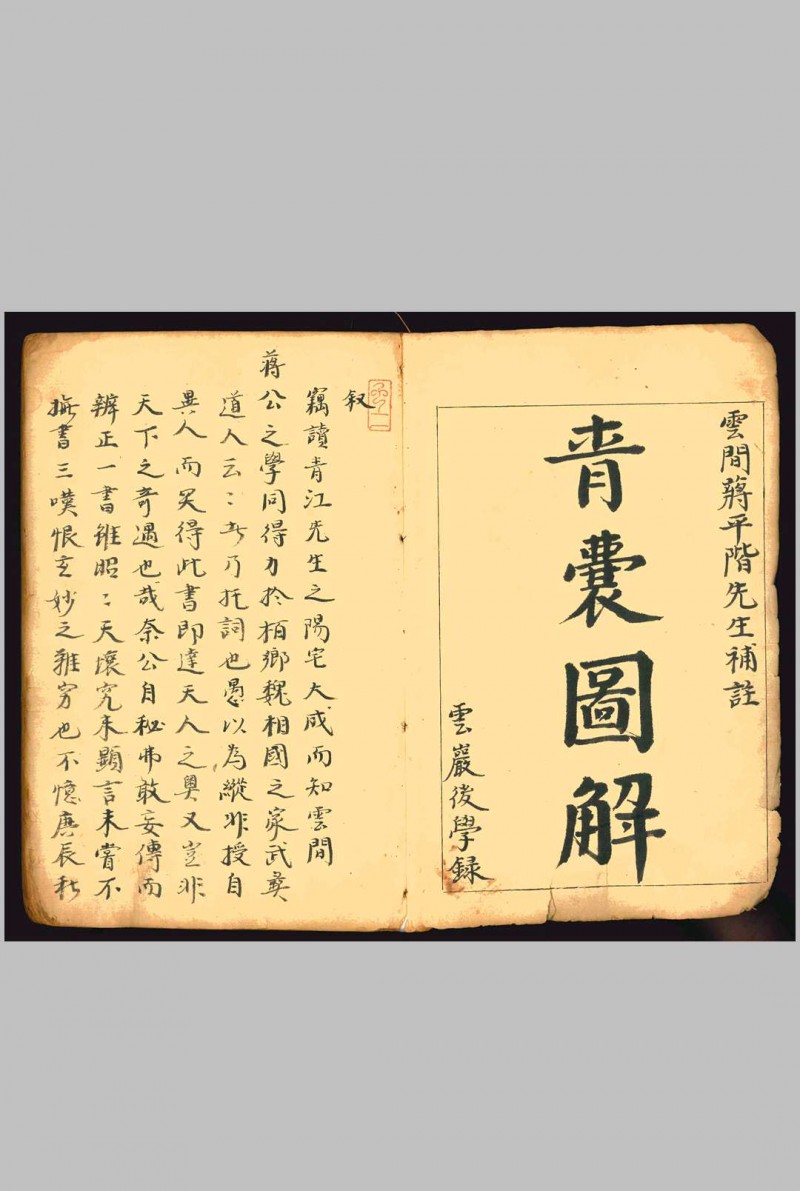 雲間蔣平階先生補註
青囊圖解
雲巖後學録
叙
竊讀青江先生之陽宅大成而知雲間
蔣公之學同得力於栢鄉魏相國之家武彛
道人云〻者乃托詞也愚以為縱非授自
異人而旲得此書即達天人之奧又豈非
天下之奇遇也哉奈公自秘弗敢妄傳而
辨正一書雖昭〻天壤究未顯言未嘗不
撫書三嘆恨玄妙之難窮也不憶庚辰秋